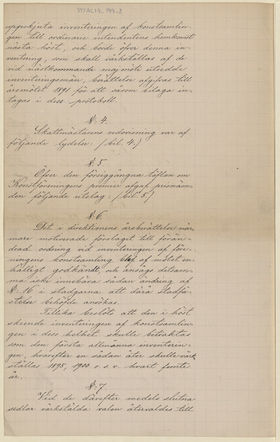 uppskjuta inventeringen af konstsamlin-
gen till ordinarie intendentens hemkomst
nästa höst, och borde öfver denna in-
ventering, som skall verkställas af de
vid nästkommande majmöte utsedde
inventeringsmän, berättelse afgifvas till
årsmötet 1891 för att såsom bilaga in-
tagas i dess protokoll.
§. 4.
Skattmästarens redovisning var af
följande lydelse: (bil. 4.)
§. 5
Öfver den föregångna täflan om
Konstföreningens premier afgaf prisnämn-
den följande utslag: (bil. 5.)
§. 6
Det i direktionens årsberättelse när-
mare motiverade förslaget till förän-
derad ordning vid inventeringen af för-
eningens konstsamling blef af mötet en-
hälligt godkändt, och ansågs detsam-
ma icke innebära sådan ändring af
§. 16 i stadgarna att deras stadfä-
stelse behöfde ansökas.
Tillika beslöts att den i höst
skeende inventeringen af konstsamlin-
gen i dess helhet skulle betraktas
som den första allmänna inventerin-
gen, hvarefter en sådan åter skulle verk-
ställas 1895, 1900 o. s. v. hvart femte
år.
§. 7
Vid de därefter medels slutna
sedlar verkstälda valen återvaldes till